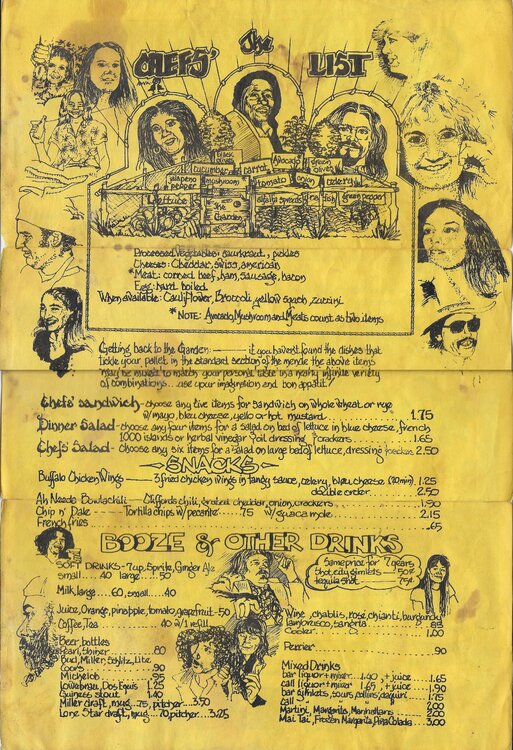 The
CHEFS' LIST
black olives
Avocado
green olives
cucumber
carrot
jalapeno pepper
mushroom
tomato
onion
celery
lettuce
The Garden
alfalfa sprouts
radish
green pepper
Processed Vegetables: saurkraut, pickles
Cheeses: Cheddar, swiss, american
*Meat: corned beef, ham, sausage, bacon
Egg: hard boiled
When available: Cauliflower, Broccoli, yellow squash, zuccini
*NOTE: Avocado, Mushroom and Meats count as two items
Getting back to the Garden——— if you haven't found the dishes that
tickle your pallet in the standard section of the menue the above items
may be mixed to match your personal taste in a many infinite variety
of combinations...use your imagination and bon appetit!
Chefs' sandwich-choose any five items for sandwich on whole wheat or rye
w/mayo, bleu cheese, yello or hot mustard 1.75
Dinner Salad-choose any four items for a salad on bed of lettuce in bleu cheese, french
1000 islands or herbal vinegar & oil dressing, crackers 1.65
Chefs' Salad-choose any six items for a salad on large bed of lettuce, dressing, crackers 2.50
SNACKS
Buffalo Chicken Wings——— 3 fried chicken wings in tangy sauce, celery, bleu cheese (20 min). 1.25
double order 2.50
Ah Needs Bowlachili—Cliffords chili, grated cheddar, onion, crackers 1.90
Chip n' Dale---- Tortilla chips w/ pecante .75 w/ guacamole 2.15
French fries .65
BOOZE & OTHER DRINKS
SOFT DRINKS-7up, Sprite, Ginger Ale
small....40 large....50
Milk, large ....60, small...40
Juice, Orange, pineapple, tomato, grapefruit-50
Coffee, Tea 40 w/1 refill
Beer, bottles
Pearl, Shiner .80
Bud, Miller, Schlitz, Lite
Coors .90
Michelob .95
Lowebrau, Dos Equis 1.25
Guiness stout 1.40
Miller draft, mug .75, pitcher 3.50
Lone Star draft, mug .70, pitcher...3.25
Same price for 7 years
Shot, city gimlets — 50¢
tequila shot 75¢
Wine, chablis, rosé, chianti, burgundy
lambrusco, sangria .85
Cooler 1.00
Perrier .90
Mixed Drinks
bar liquor + mixer 1.40, + juice 1.65
call liquor + mixer 1.65, + juice 1.90
bar gimlets, sours, collins, daquiri 1.75
call 2.00
Martini, Margarita, Manhattans 2.00
Mai Tai, Frozen Margarita, Pina Colada 3.00